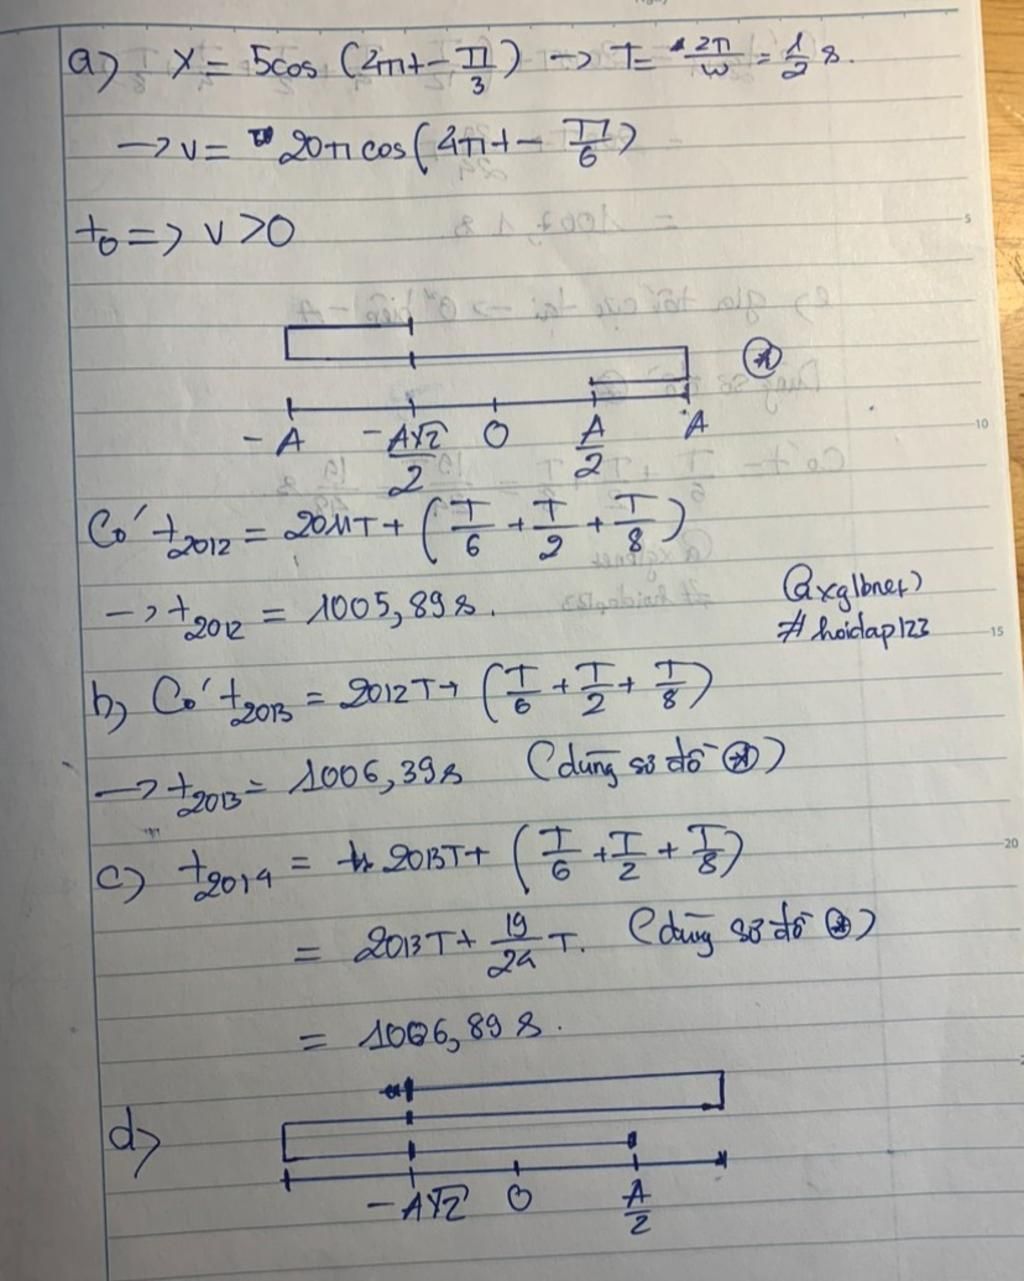 a) x = 5cos (4πt - π/3) → T = 2π/ω = 1/2 s.
→ v = 20π cos (4πt - π/6)
t₀ => v > 0
(*)
-A -A√2/2 O A/2 A
Có t₂₀₁₂ = 2011T + (T/6 + T/2 + T/8)
→ t₂₀₁₂ = 1005,89 s.
@xglbner)
# hoidap123
b) Có t₂₀₁₃ = 2012T + (T/6 + T/2 + T/8)
→ t₂₀₁₃ = 1006,39 s (dùng sơ đồ (*))
c) t₂₀₁₄ = 2013T + (T/6 + T/2 + T/8)
= 2013T + 19/24 T. (dùng sơ đồ (*))
= 1006,89 s.
d)
-A√2 O A/2